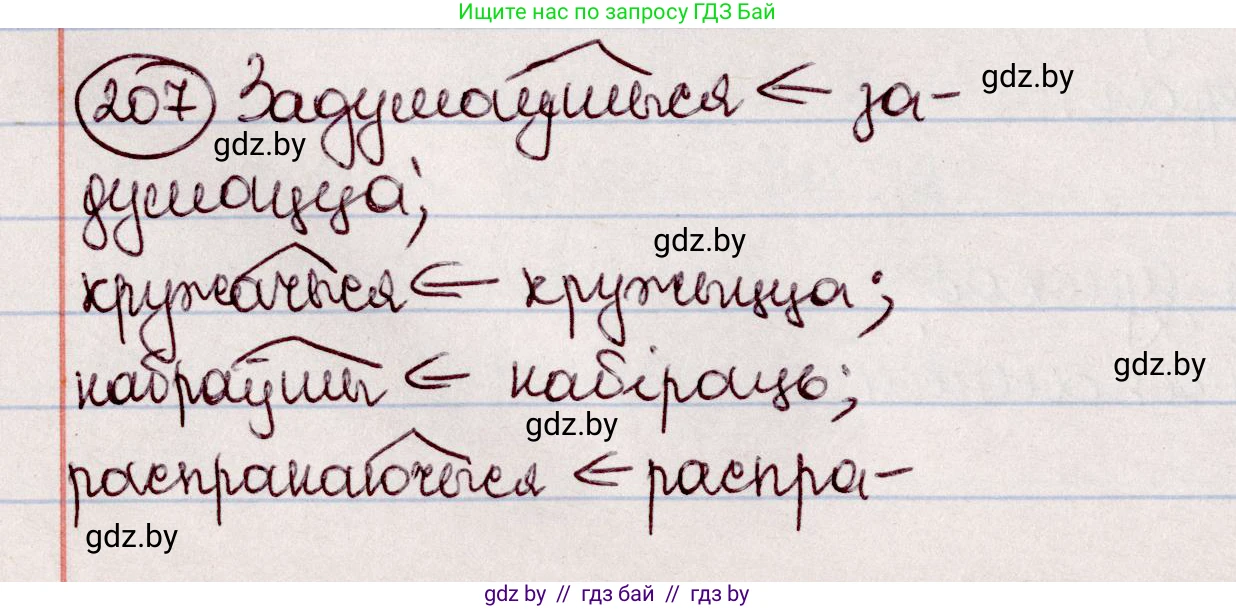 Ищите нас по запросу ГДЗ Бай
207 Задумаўшыся ← за- gdz.by
gdz.by
думацца;
gdz.by
кружачыся ← кружыцца;
набраўшы ← набіраць; gdz.by
gdz.by
распранаючыся ← распра-
gdz.by
gdz by // гдз бай // гдз by